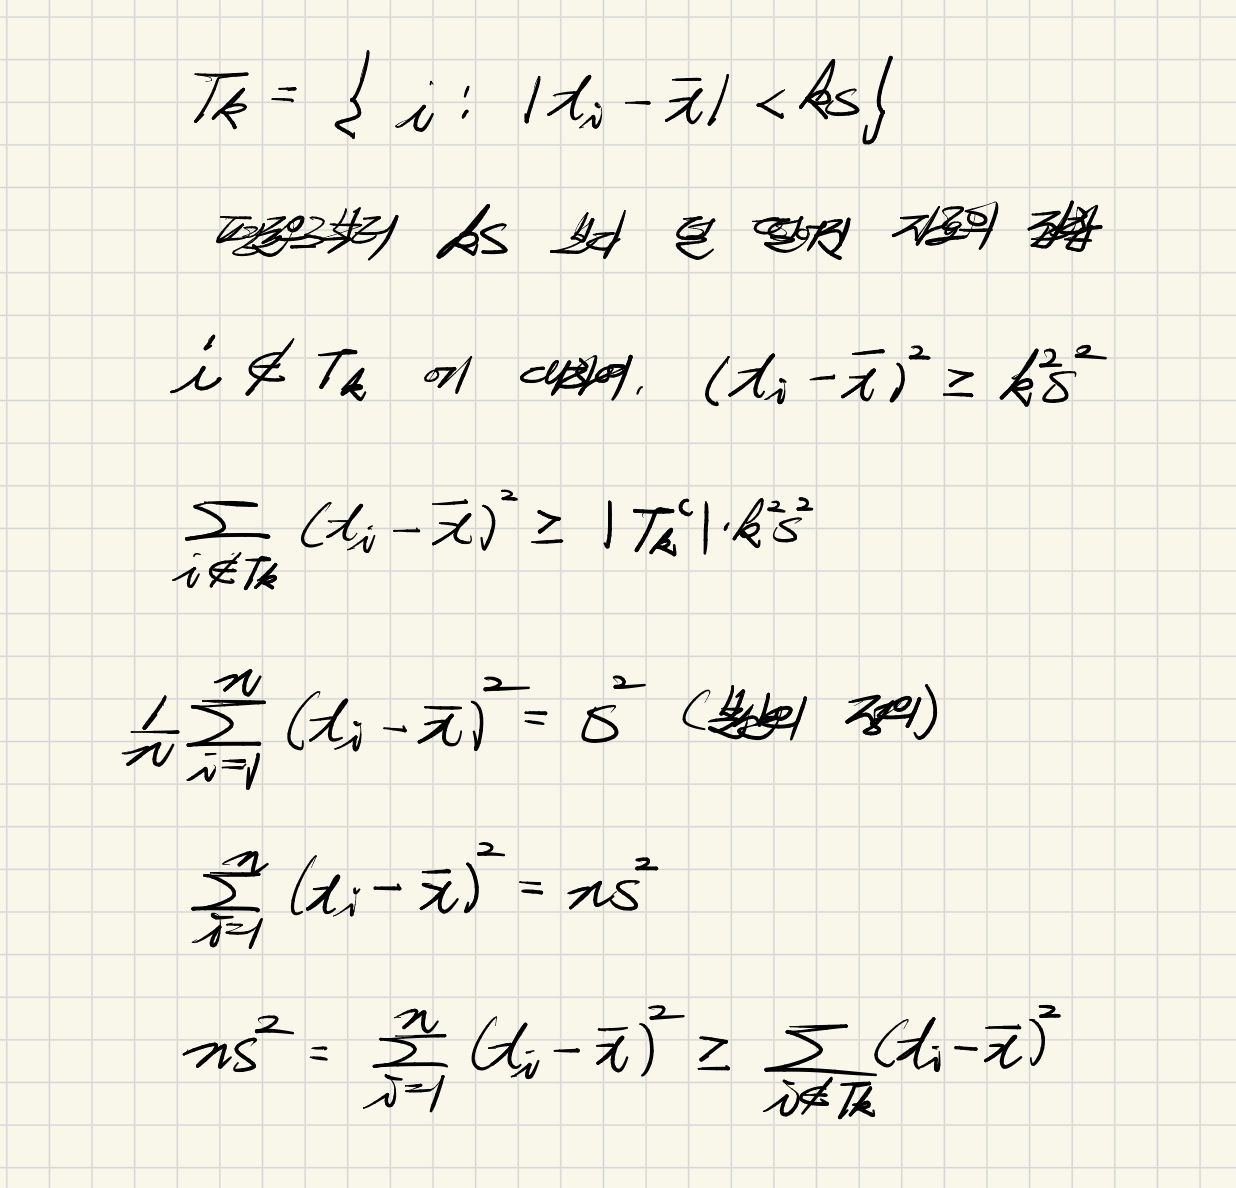 T_k = { i : |x_i - x̄| < ks }
평균으로부터 ks 보다 덜 떨어진 자료의 집합
i ∉ T_k 에 대하여, (x_i - x̄)² ≥ k²s²
∑_{i∉T_k} (x_i - x̄)² ≥ |T_k^c|·k²s²
1/n ∑_{i=1}^{n} (x_i - x̄)² = s² (분산의 정의)
∑_{i=1}^{n} (x_i - x̄)² = ns²
ns² = ∑_{i=1}^{n} (x_i - x̄)² ≥ ∑_{i∉T_k} (x_i - x̄)²